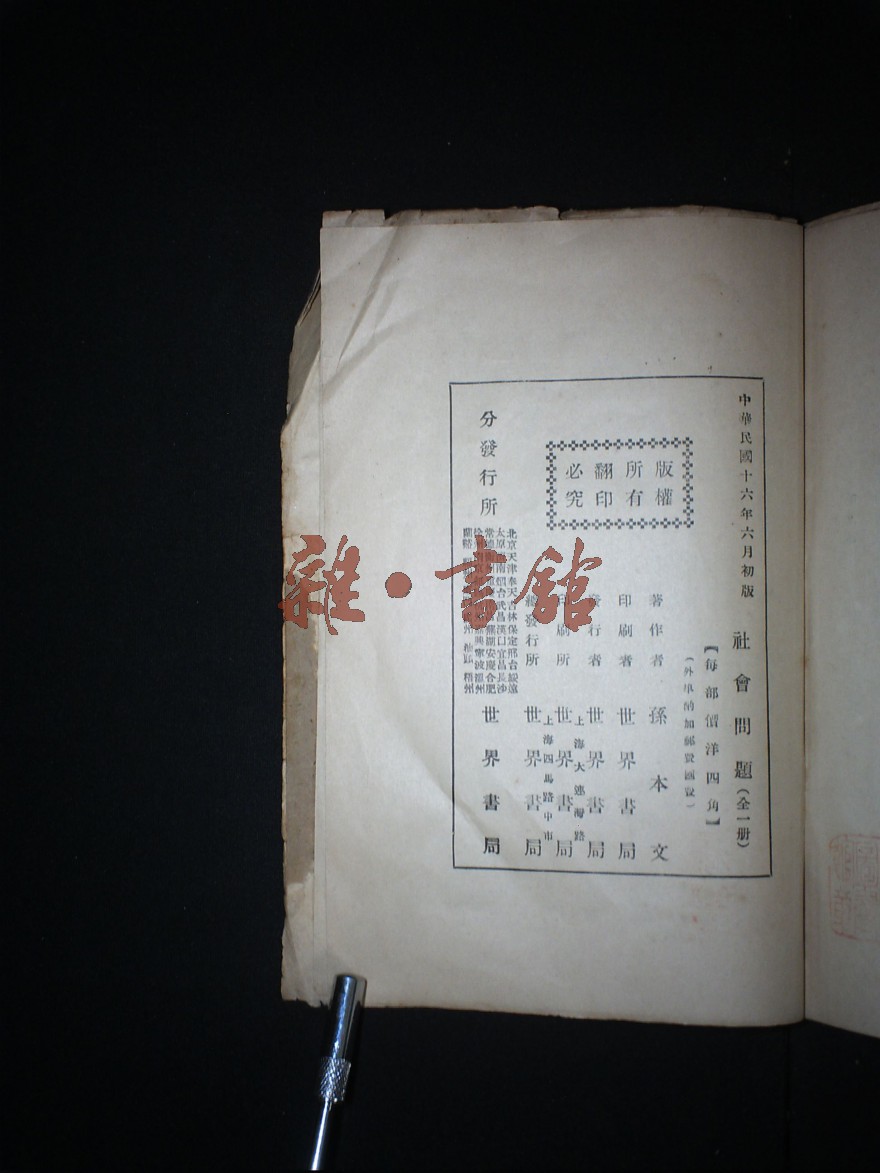 中華民國十六年六月初版
社會問題(全一册)
【每部價洋四角】
(外埠酌加郵費匯費)
版權
所有
翻印
必究
著作者 孫本文
印刷者 世界書局
發行者 世界書局
上海大連灣路
印刷所 世界書局
上海四馬路中市
總發行所 世界書局
分發行所
北京天津奉天吉林保定邢台綏遠
太原 南烟台武昌漢口宜昌長沙
蕪湖安慶合肥
嘉興寧波
梧州
世界書局
雜·書舘